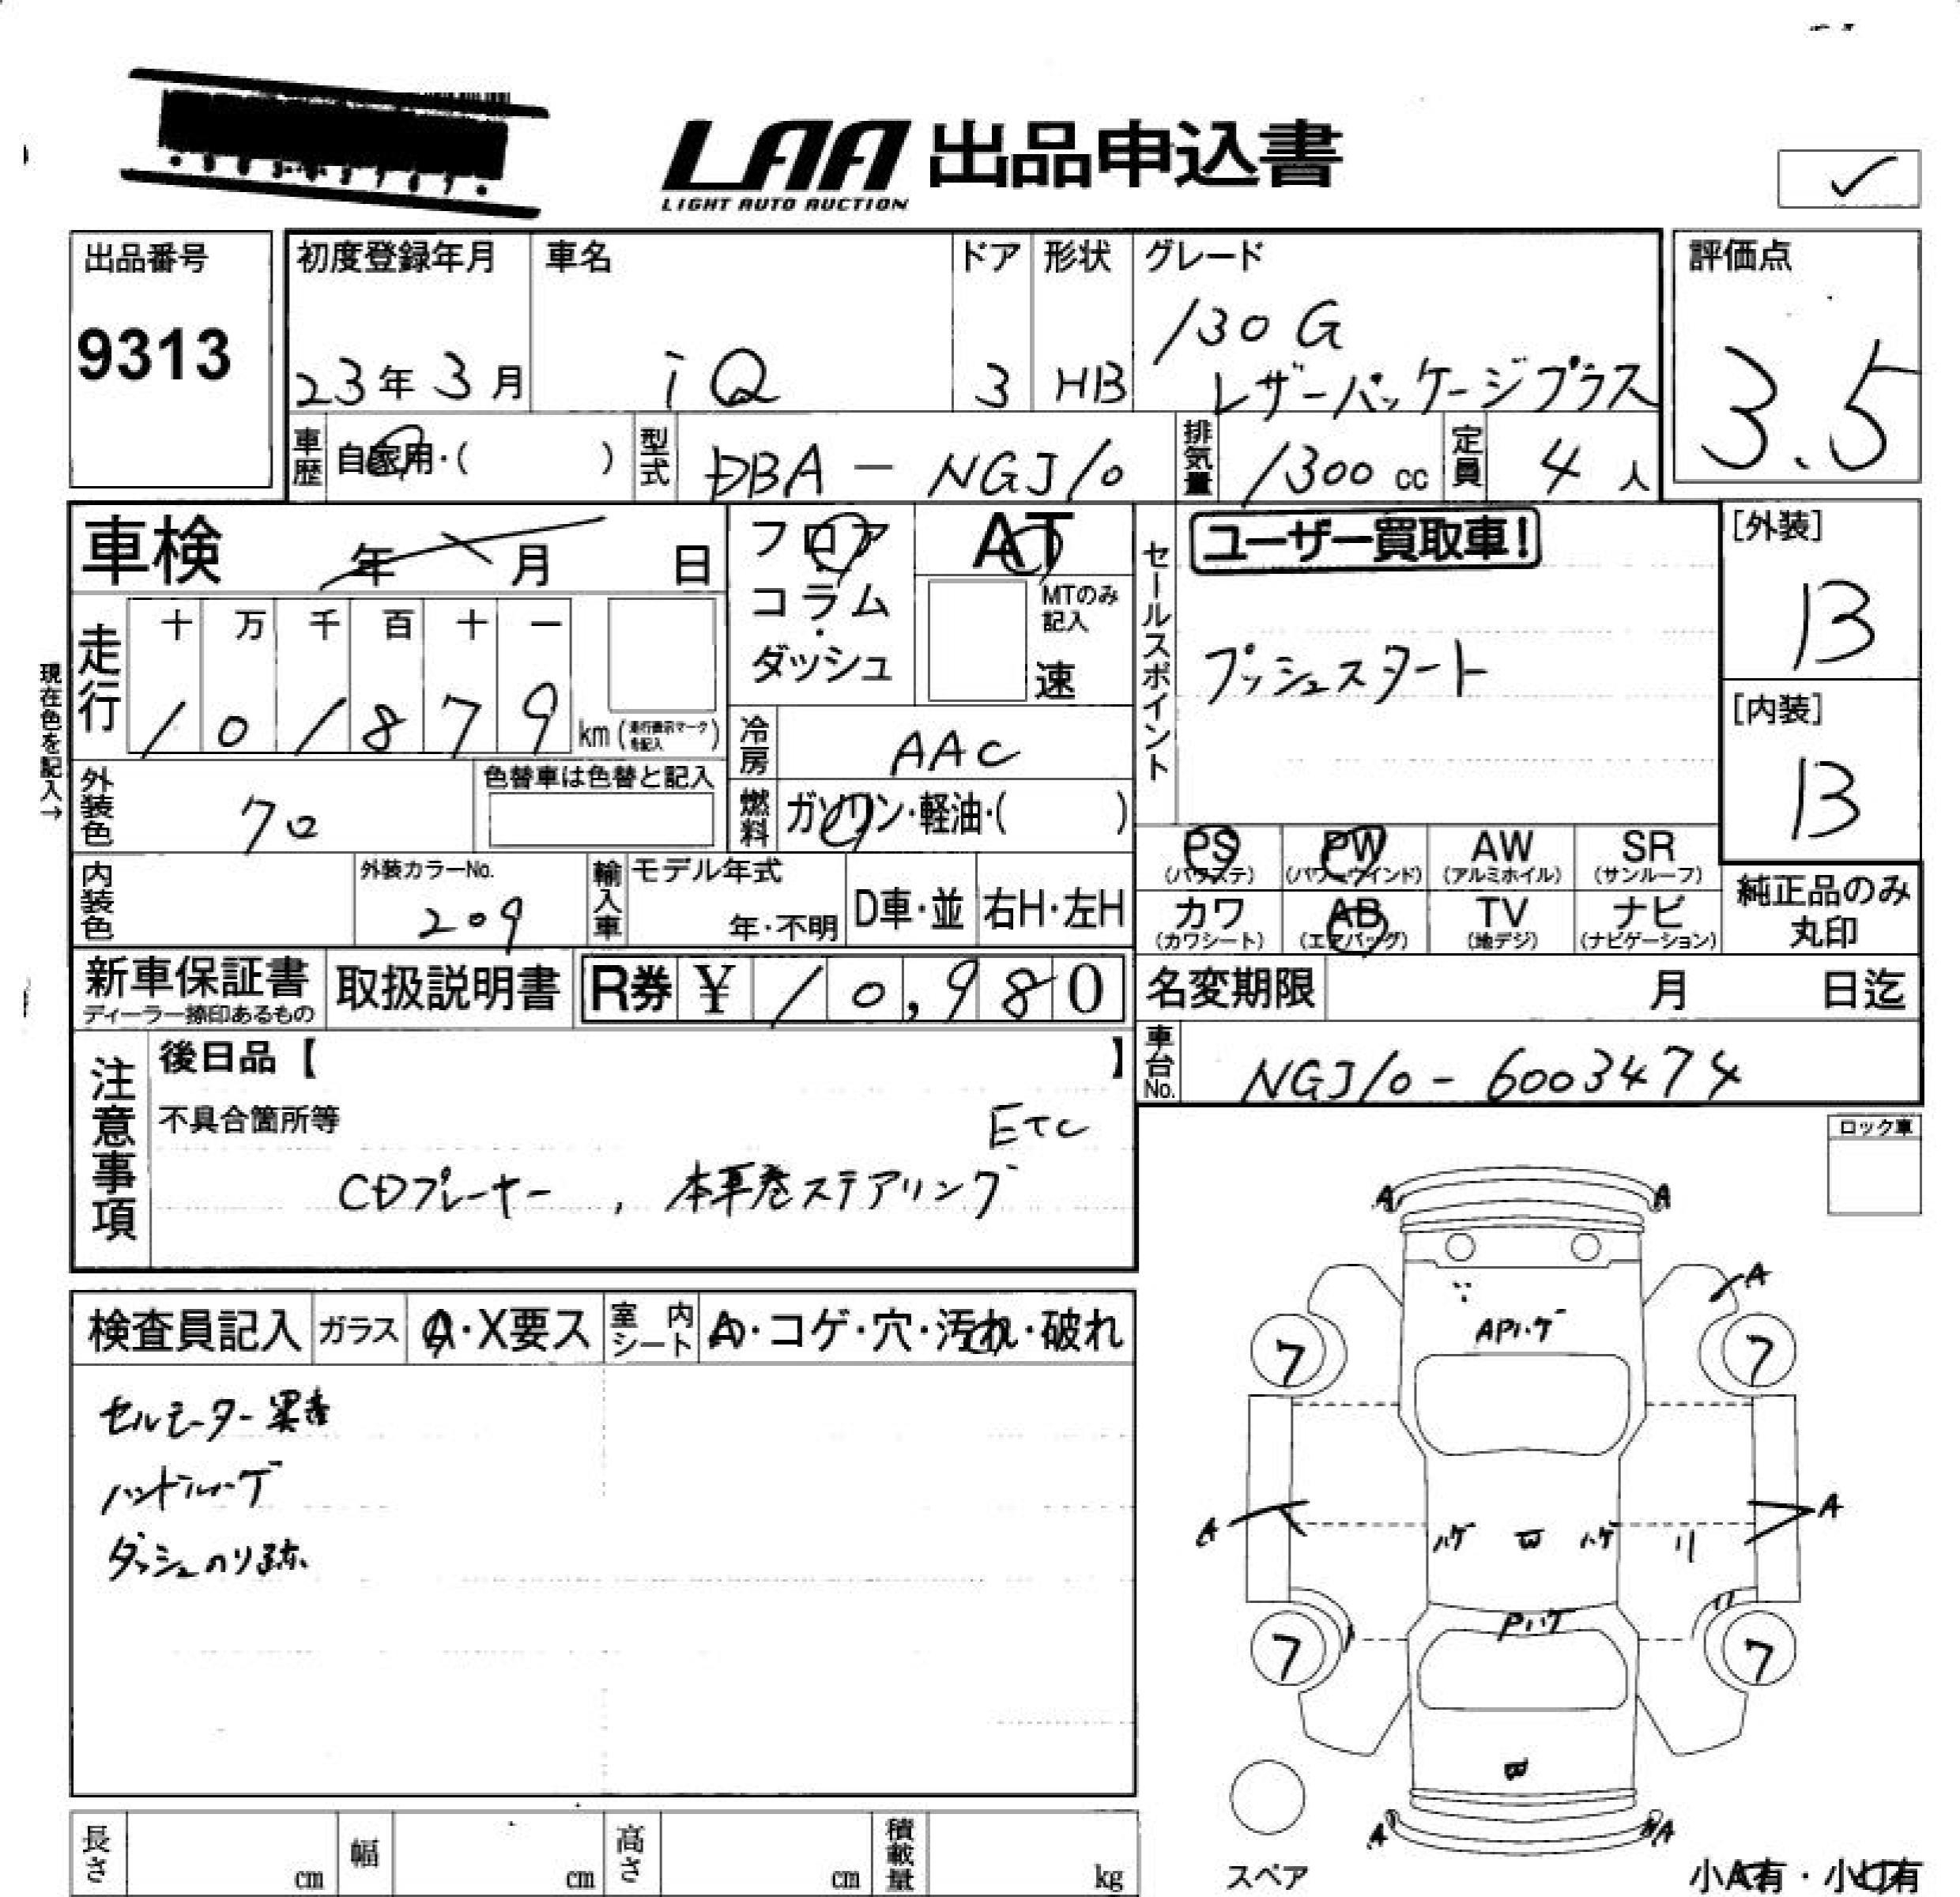 LAA 出品申込書
LIGHT AUTO AUCTION
✓
出品番号
9313
初度登録年月
23年3月
車名
iQ
ドア
3
形状
HB
グレード
130G
レザーパッケージプラス
評価点
3.5
車歴
自家用・( )
型式
DBA-NGJ10
排気量
1300cc
定員
4人
車検 年 月 日
フロア
コラム
・
ダッシュ
AT
MTのみ
記入
速
セールスポイント
ユーザー買取車!
プッシュスタート
[外装]
13
[内装]
13
現在色を記入→
走行
十 万 千 百 十 一
1 0 1 8 7 9 km (走行表示マークを記入)
冷房
AAC
外装色
クロ
色替車は色替と記入
燃料
ガソリン・軽油・( )
PS
(パワステ)
PW
(パワーウインド)
AW
(アルミホイル)
SR
(サンルーフ)
内装色
外装カラーNo.
209
輸入車
モデル年式
年・不明
D車・並
右H・左H
カワ
(カワシート)
AB
(エアバッグ)
TV
(地デジ)
ナビ
(ナビゲーション)
純正品のみ
丸印
新車保証書
ディーラー捺印あるもの
取扱説明書
R券 ¥ 10,980
名変期限 月 日迄
車台No.
NGJ10-6003474
注意事項
後日品【 】
不具合箇所等
ETC
CDプレーヤー , 本革巻ステアリング
ロック車
検査員記入
ガラス
A・X要ス
室内シート
A・コゲ・穴・汚れ・破れ
セルモーター異音
ハンドルハゲ
ダッシュのり跡
A A
A
APハゲ
7 7
A A
ハゲ B ハゲ リ
Pハゲ
7 7
B
A A
スペア
小A有・小U有
長さ cm
幅 cm
高さ cm
積載量 kg